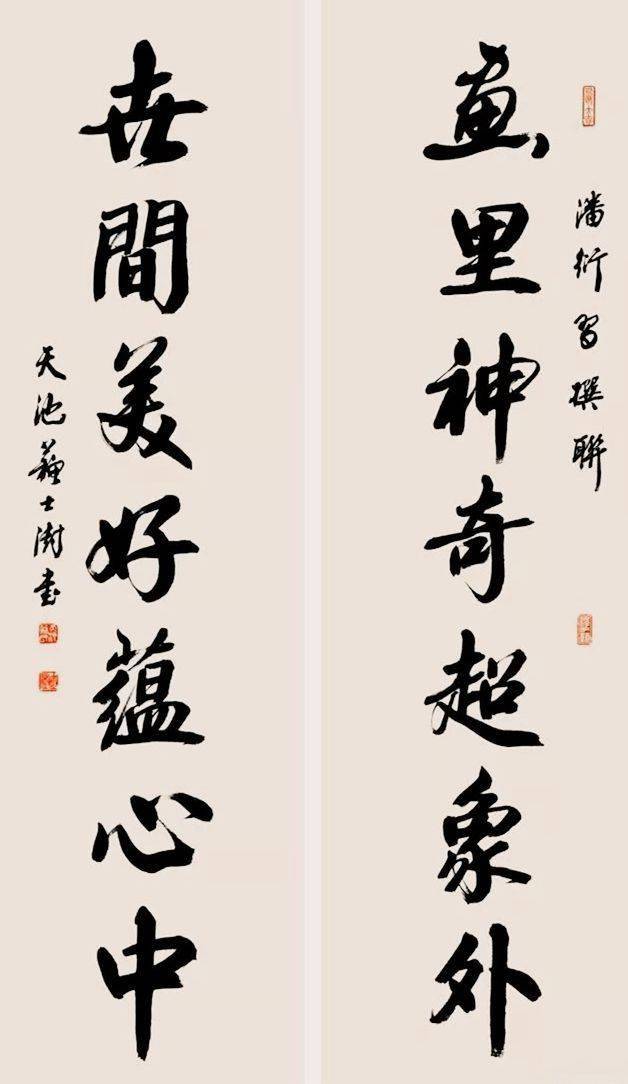 潘衍習撰聯
畫里神奇超象外
世間美好蘊心中
天池蘇士澍書